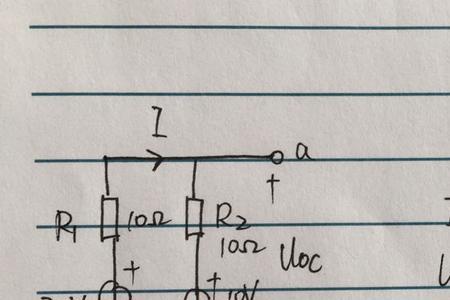 I
a
+
R1 10Ω R2
10Ω
Uoc
+ +
10V